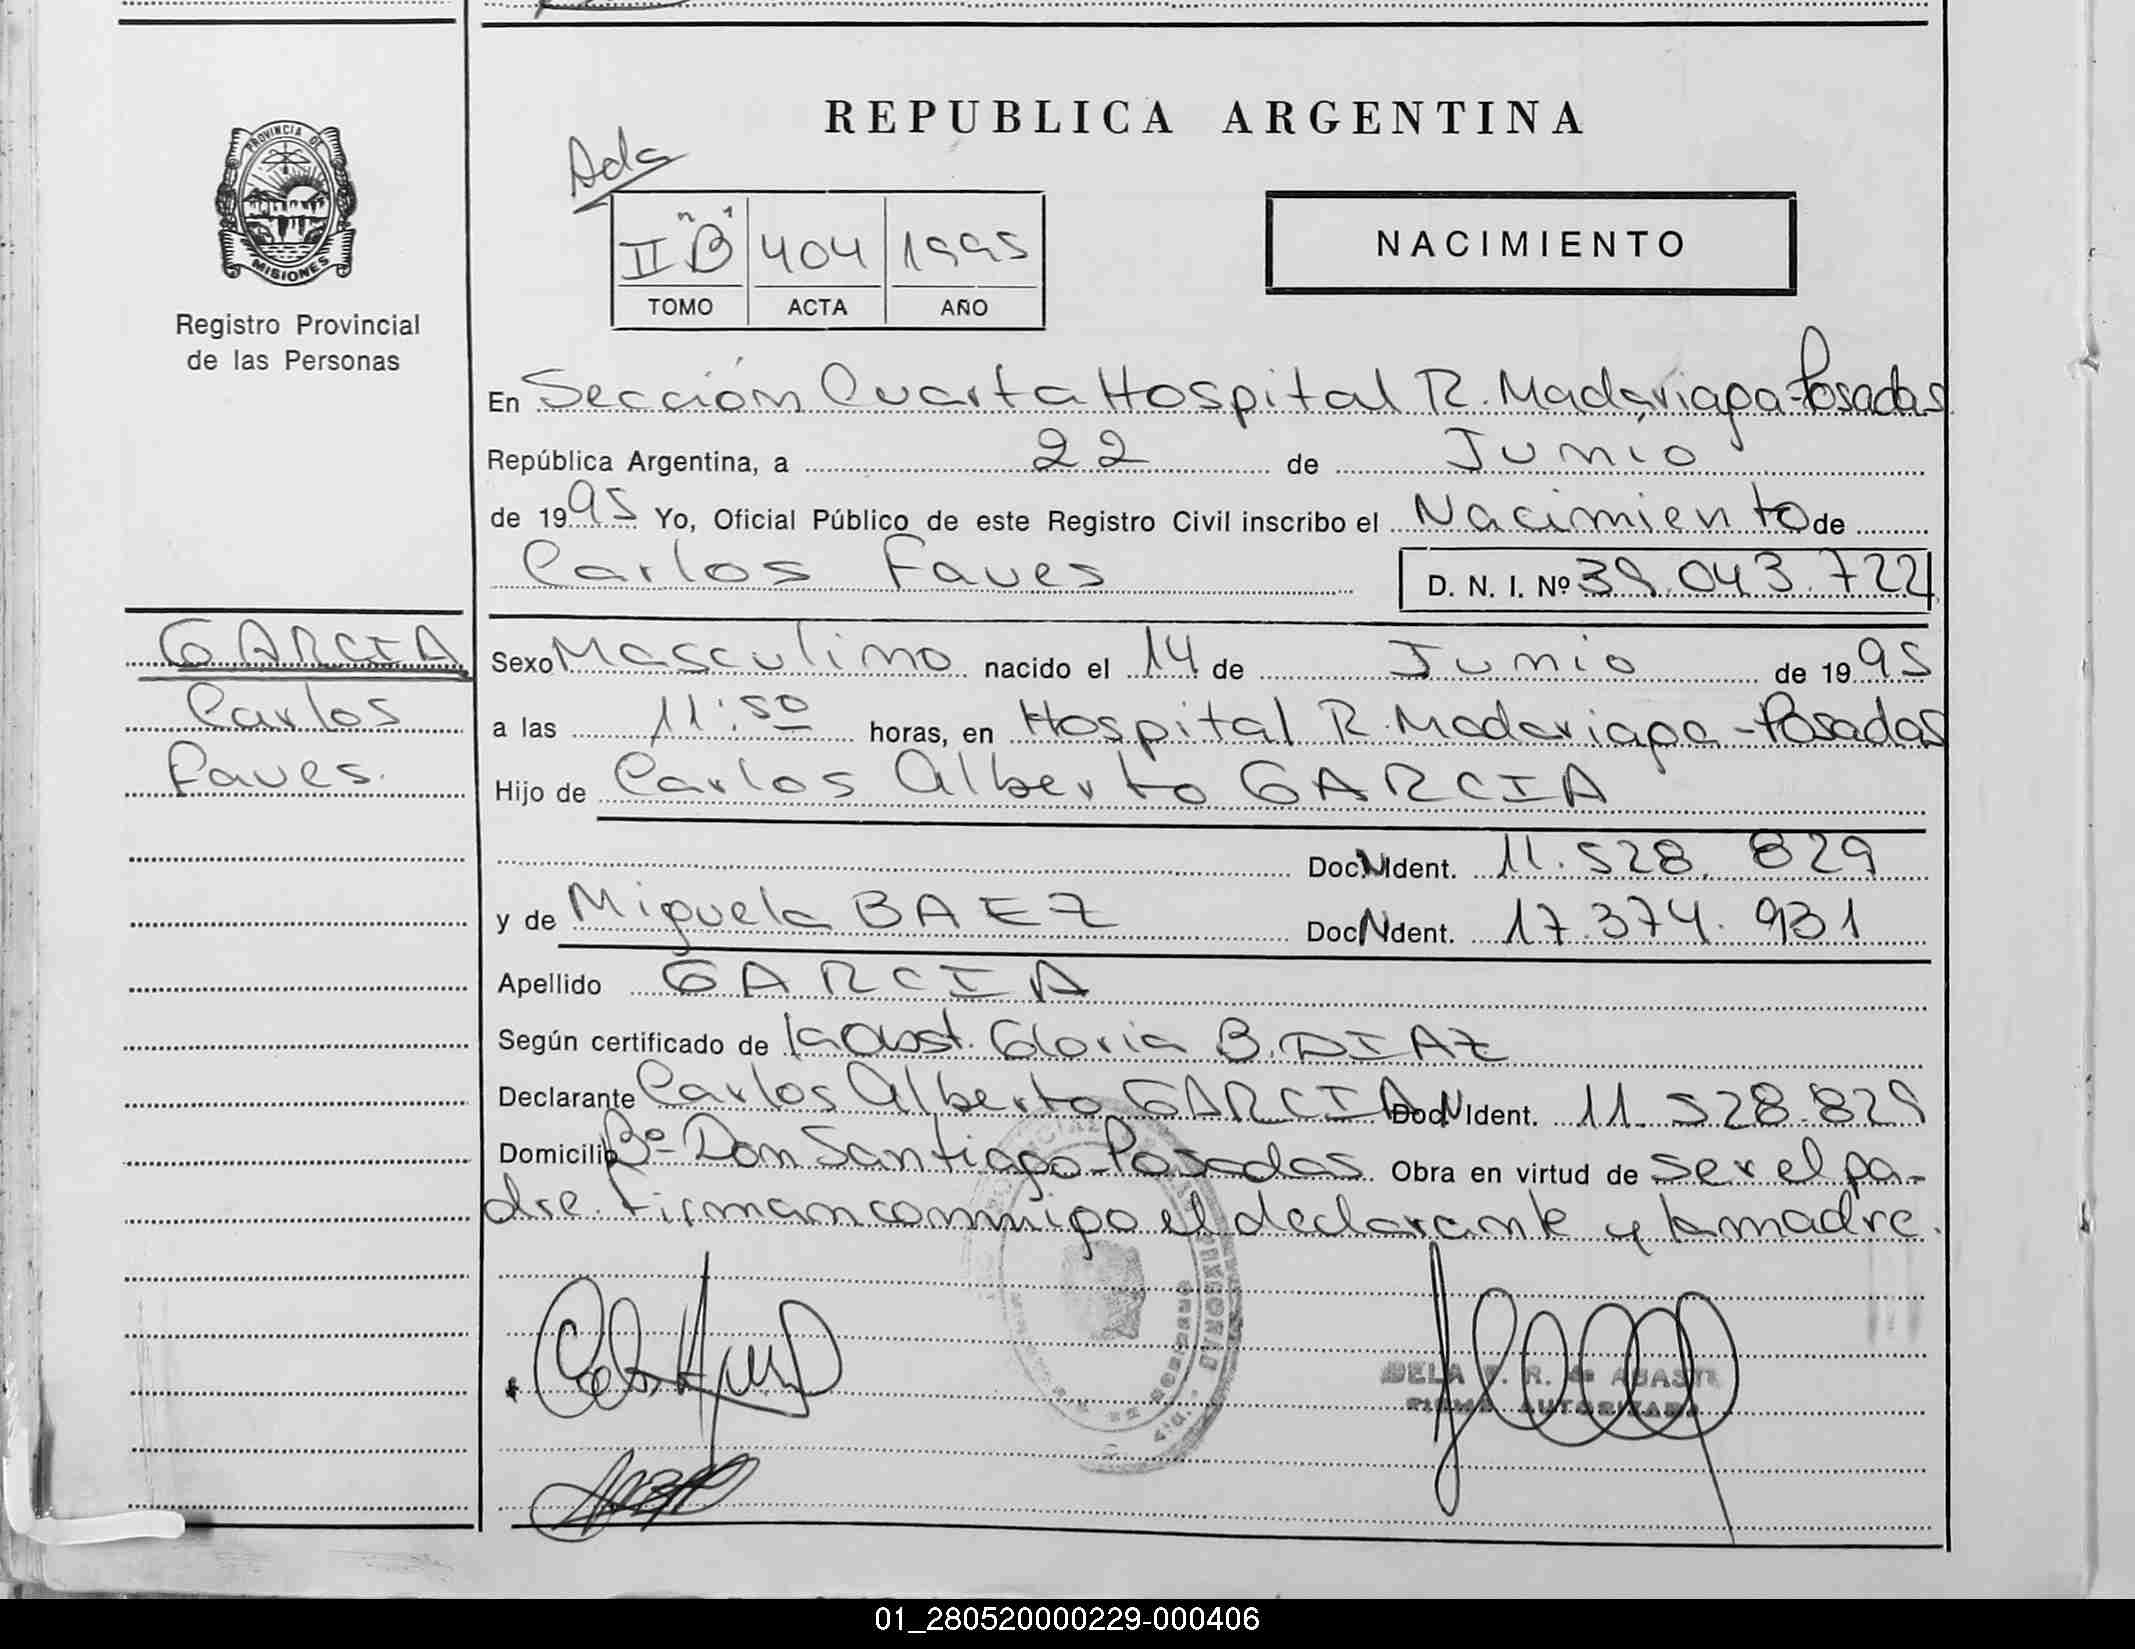 REPUBLICA ARGENTINA
PROVINCIA DE
MISIONES
Registro Provincial
de las Personas
Ads
II "B" 1
404
1995
TOMO
ACTA
AÑO
NACIMIENTO
En Sección Cuarta Hospital R. Madariaga-Posadas
República Argentina, a 22 de Junio
de 1995 Yo, Oficial Público de este Registro Civil inscribo el Nacimiento de
Carlos Faves
D. N. I. Nº 39.043.722
GARCIA
Carlos
Faves.
Sexo Masculino nacido el 14 de Junio de 1995
a las 11:50 horas, en Hospital R. Madariaga-Posadas
Hijo de Carlos Alberto GARCIA
Doc. N Ident. 11.528.829
y de Miguela BAEZ Doc N Ident. 17.374.931
Apellido GARCIA
Según certificado de la Obst. Gloria B. DIAZ
Declarante Carlos Alberto GARCIA Doc N Ident. 11.528.829
Domicilio Bº Don Santiago-Posadas Obra en virtud de ser el pa-
dre. Firman conmigo el declarante y la madre.
FIRMA AUTORIZADA
01_280520000229-000406